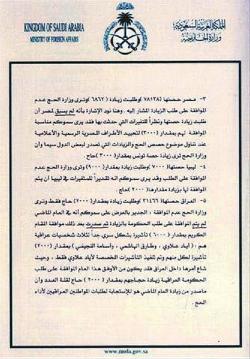 KINGDOM OF SAUDI ARABIA
MINISTRY OF FOREIGN AFFAIRS
المملكة العربية السعودية
وزارة الخارجية
٣- مصر حصتها (٧٨١٣٨) وطلبت زيادة (٦٨٦٢) وترى وزارة الحج عدم
الموافقة على طلب الزيادة المشار إليه . وهنا نود الإشارة بأنه لم يسبق لمصر
طلب زيادة حصتها ونظراً للتغيرات التي حدثت بها فقد يرى سموكم مناسبة
الموافقة لهم بمقدار (٣٠٠٠) الأطراف الرسمية
عند تناول موضوع حصص الحج والزيادات التي تصدر لبعض الدول سيما وأن
وزارة الحج ترى زيادة حصة تونس بمقدار (٢٠٠٠) حاج .
٤- ليبيا حصتها (٧٠٠٠) وطلبت زيادة بمقدار (٩٠٠٠) وترى وزارة الحج عدم
الموافقة على الطلب وقد يرى سموكم أنه تقديراً في ليبيا أن يتم
الموافقة لها بزيادة مقدارها (٢٠٠٠) حاج .
٥- العراق حصتها (٣١٤٦٦) وطلبت زيادة بمقدار (٢٠٠٠) حاج وترى
وزارة الحج عدم الموافقة ، الجدير بالعرض على سموكم أنه في العام الماضي
لم يتم الموافقة على طلب الحكومة بالزيادة ثم صدرت بعد ذلك موافقة المقام
الكريم بمقدار تأشيرة بشكل سري جداً لثلاث شخصيات عراقية
هم (أياد علاوي ، وطارق الهاشمي ، وأسامة النجيفي) بمقدار
تأشيرة لكل منهم وتم تنفيذ التأشيرات المخصصة لأياد علاوي فقط ، وحيث
شاع أمرها داخل العراق فقد يكون من الأوفق هذا العام الموافقة على طلب
الحكومة العراقية بزيادة حجاجهم بمقدار (٢٠٠٠) حاج لقلة العدد وأن
ما صدر من زيادة العام الماضي هو لطلبات المواطنين العراقيين لأداء
الحج .
www.mofa.gov.sa